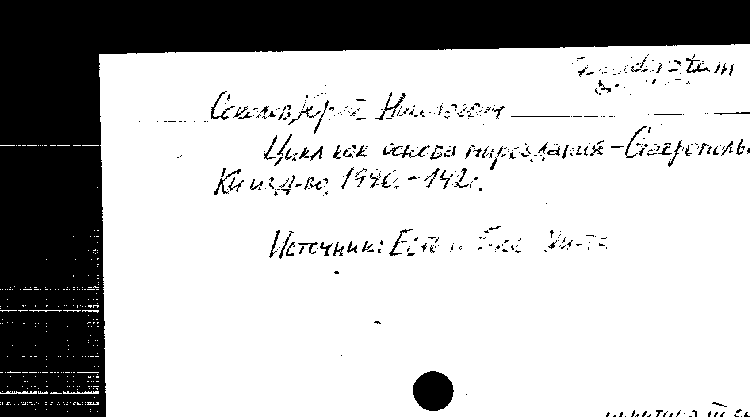 Соколов, Юрий Николаевич
Цикл как основа мироздания - Ставрополь
Кн изд-во, 1990. - 142с.
Источник: Есть в